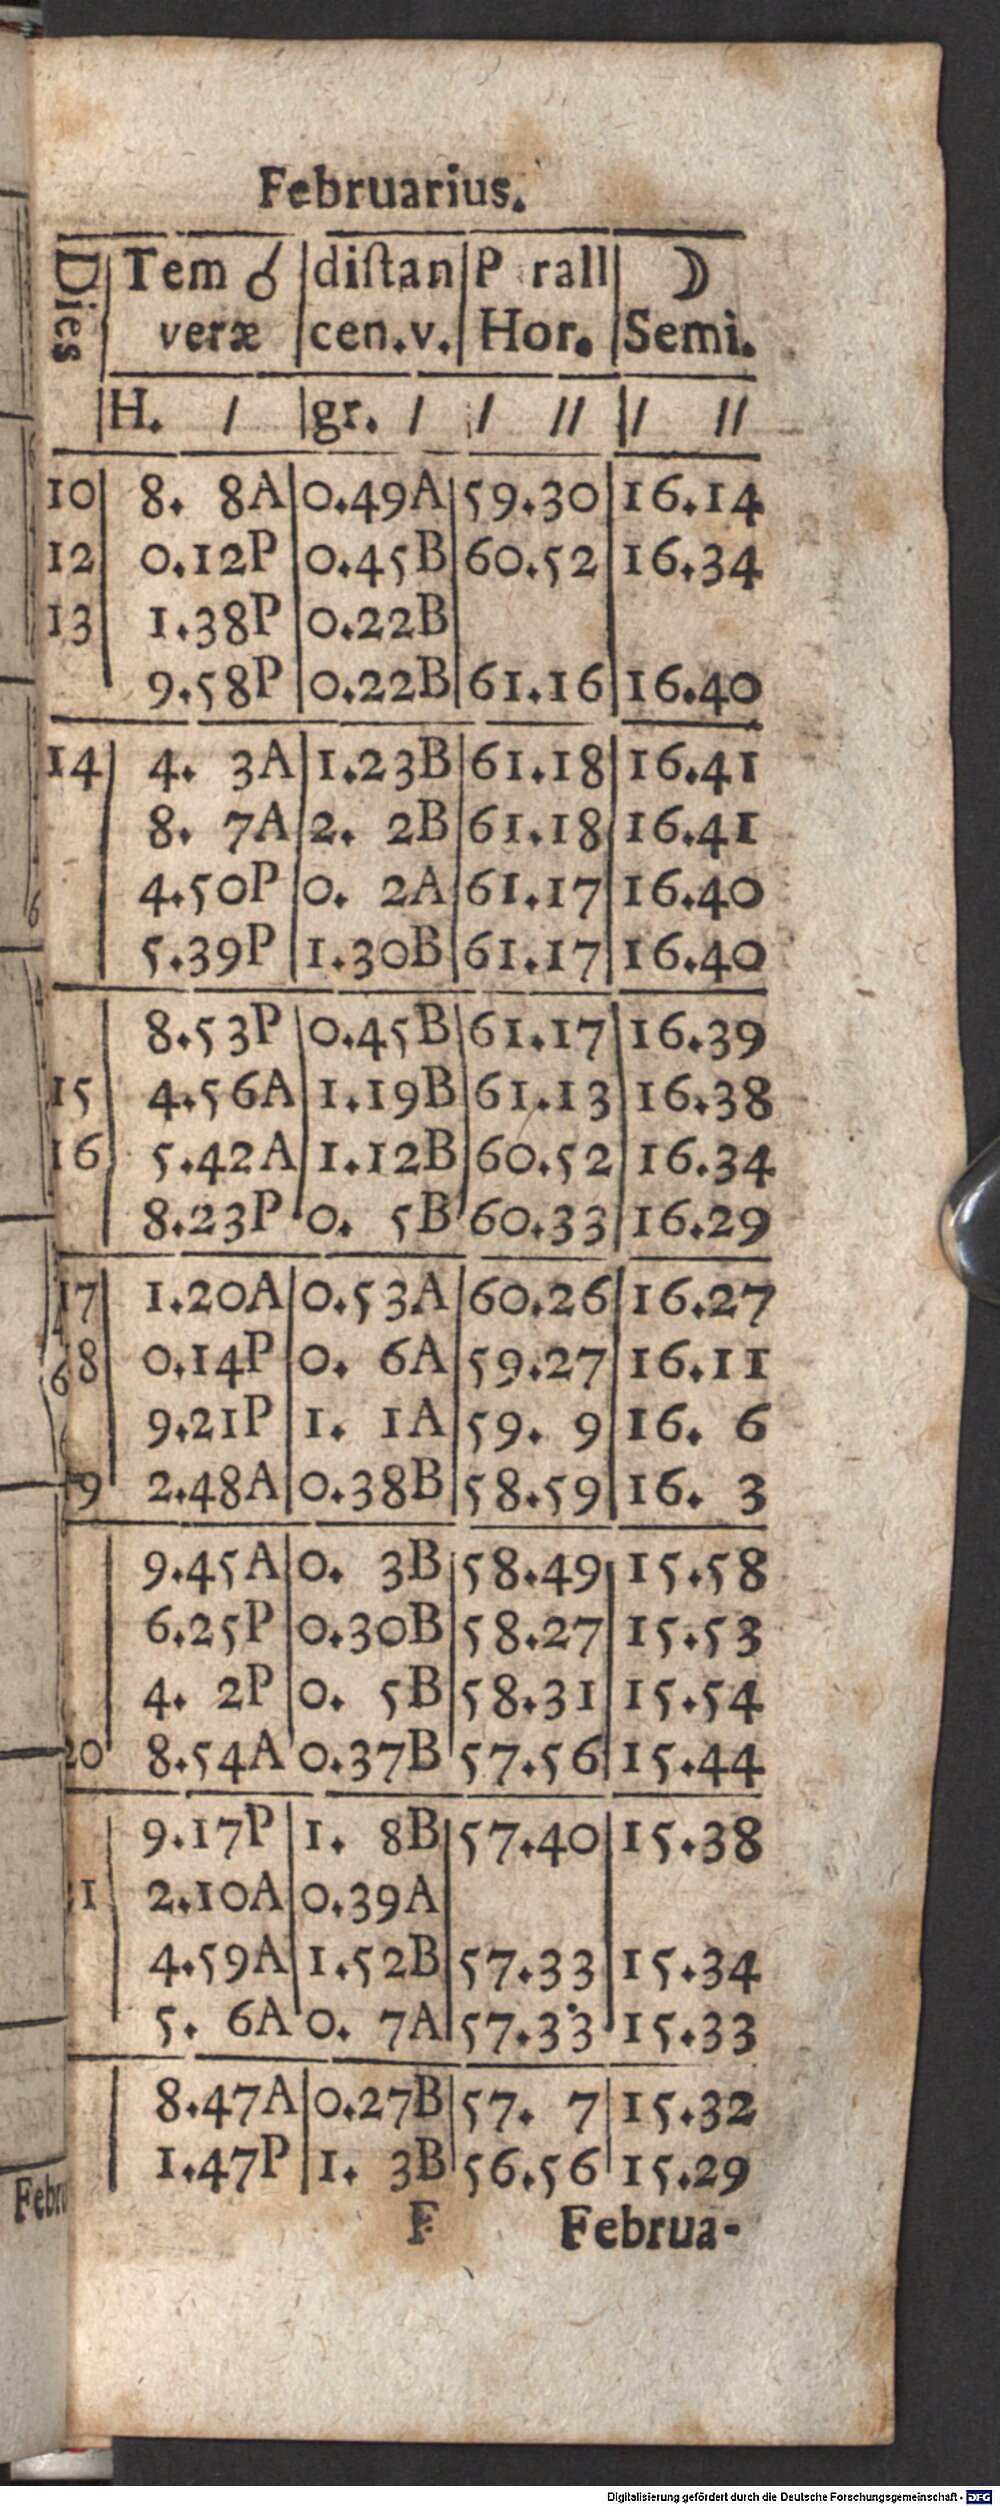 Februarius.
Dies | Tem ☌ | diſtan | P rall | ☽
veræ | cen.v. | Hor. | Semi.
H. / | gr. / | / // | / //
10 | 8. 8A | 0.49A | 59.30 | 16.14
12 | 0.12P | 0.45B | 60.52 | 16.34
13 | 1.38P | 0.22B
9.58P | 0.22B | 61.16 | 16.40
14 | 4. 3A | 1.23B | 61.18 | 16.41
8. 7A | 2. 2B | 61.18 | 16.41
4.50P | 0. 2A | 61.17 | 16.40
5.39P | 1.30B | 61.17 | 16.40
8.53P | 0.45B | 61.17 | 16.39
15 | 4.56A | 1.19B | 61.13 | 16.38
16 | 5.42A | 1.12B | 60.52 | 16.34
8.23P | 0. 5B | 60.33 | 16.29
17 | 1.20A | 0.53A | 60.26 | 16.27
8 | 0.14P | 0. 6A | 59.27 | 16.11
9.21P | 1. 1A | 59. 9 | 16. 6
19 | 2.48A | 0.38B | 58.59 | 16. 3
9.45A | 0. 3B | 58.49 | 15.58
6.25P | 0.30B | 58.27 | 15.53
4. 2P | 0. 5B | 58.31 | 15.54
20 | 8.54A | 0.37B | 57.56 | 15.44
9.17P | 1. 8B | 57.40 | 15.38
1 | 2.10A | 0.39A
4.59A | 1.52B | 57.33 | 15.34
5. 6A | 0. 7A | 57.33 | 15.33
8.47A | 0.27B | 57. 7 | 15.32
1.47P | 1. 3B | 56.56 | 15.29
F Februa-
Febru
Digitalisierung gefördert durch die Deutsche Forschungsgemeinschaft - DFG